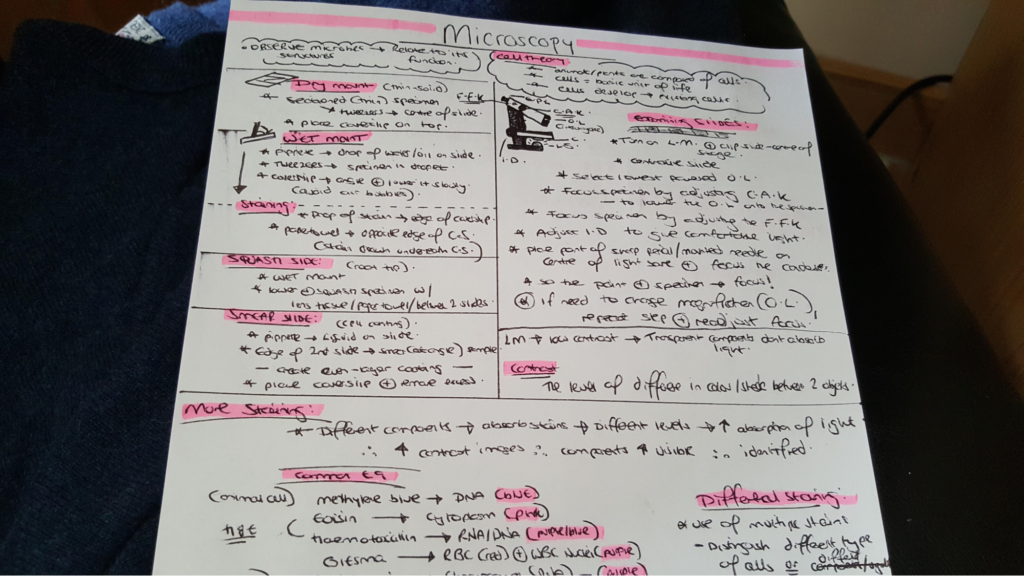 Microscopy
• OBSERVE microbes → Relate to its
structures function.
Cell theory:
* animals/plants are composed of cells.
* cells = basic unit of life
* cells develop → existing cells.
Dry mount (thin-solid)
* Sectioned (thin) specimen F.F.K
* tweezers → centre of slide.
* place coverslip on top.
WET MOUNT
* Pippete → drop of water/oil on slide.
* Tweezers → specimen in droplet
* coverslip → angle + lower it slowly.
(avoid air bubbles)
Staining:
* Drop of stain → edge of coverslip.
* papertowel → opposite edge of C.S.
(stain drawn underneath C.S.)
SQUASH SLIDE: (root tip)
* WET mount
* lower + squash specimen w/
lens tissue/paper towel/between 2 slides.
SMEAR SLIDE: (cell counting)
* pippete → liquid on slide.
* Edge of 2nd slide → smear (at angle) sample
— create even-layer coating —
* place coverslip + remove excess.
C.A.K
O.L
I.D.
examining SLIDES:
* Turn on L.M. + clip slide-centre of
stage.
* centralise slide
* Select lowest powered O.L.
* Focus specimen by adjusting C.A.K
— to lower the O.L onto the specimen
* Focus specimen by adjusting to F.F.K
* Adjust I.D to give comfortable light.
* place part of sharp pencil/mounted needle on
centre of light source + focus the condenser.
* so the point + specimen → focus!
* if need to change magnification (O.L.),
repeat step + readjust focus.
LM → low contrast → Transparent components dont absorb
light.
Contrast
The levels of difference in colour/shade between 2 objects.
More Staining:
* Different components → absorb stains → Different levels → ↑ absorption of light
∴ ↑ contrast images ∴ components ↑ visible ∴ identified.
Common Eg
(animal cell) methylene blue → DNA (blue)
Eosin → cytoplasm (pink)
H&E ( Haematoxilin → RNA/DNA (purple/blue)
Giesma → RBC (red) + WBC nuclei (purple)
Differential staining:
* use of multiple stains
- Distinguish different type
of cells or different